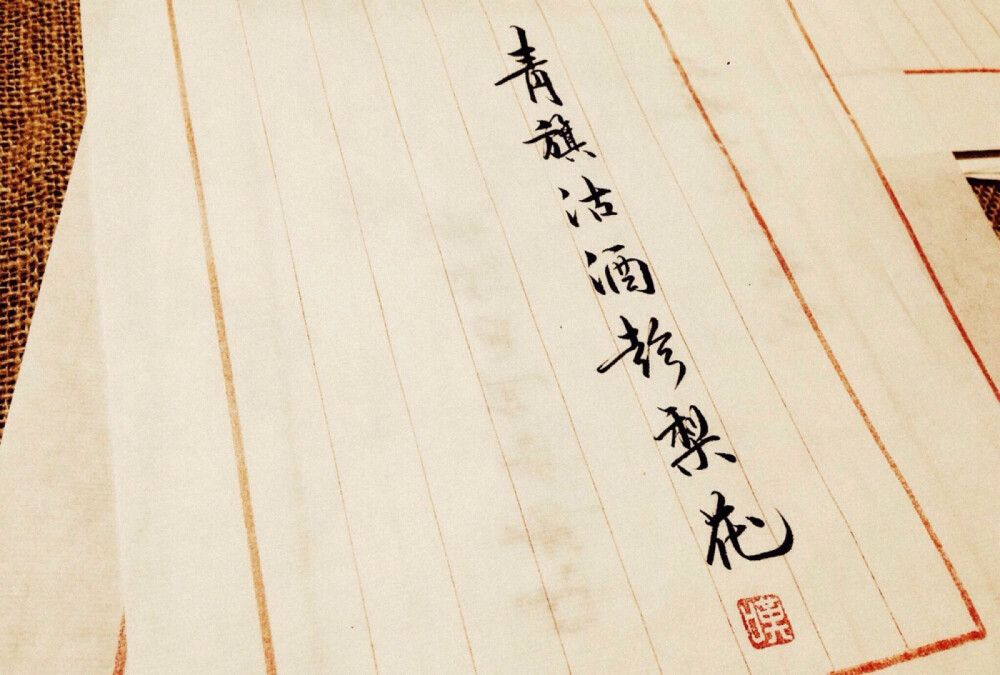 青旗沽酒趁梨花